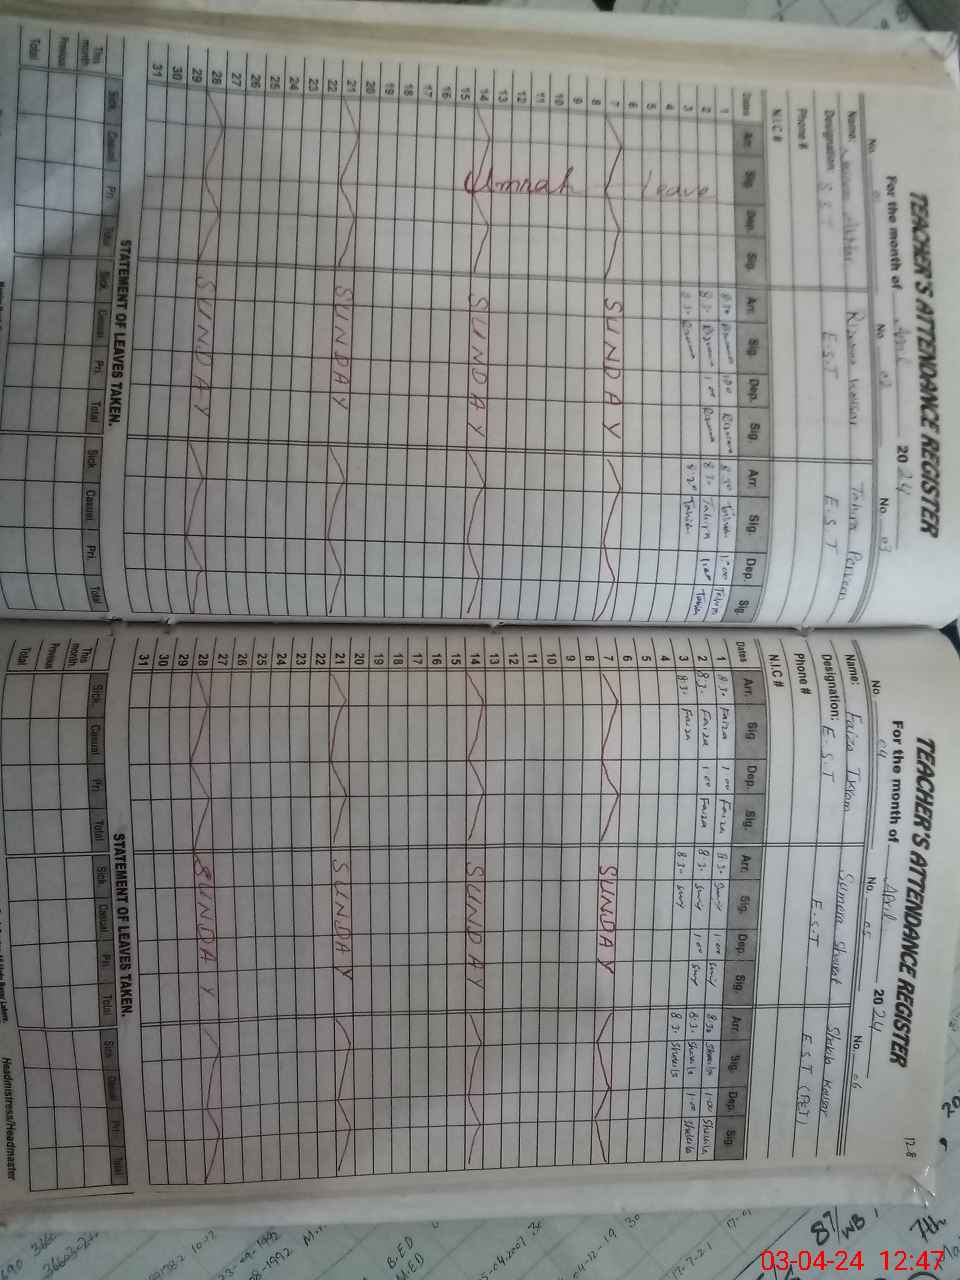 TEACHER'S ATTENDANCE REGISTER
For the month of April 2024
No. 01 No. 02 No. 03
Name: Rizwana Kousar Tahira Perveen
Designation: S.S.T E.S.T E.S.T
Phone #
N.I.C #
Dates Arr. Sig. Dep. Sig. Arr. Sig. Dep. Sig. Arr. Sig. Dep. Sig.
1 8:30 Rizwana 1:00 Rizwana 8:30 Tahira 1:00 Tahira
2 8:30 Rizwana 1:00 Rizwana 8:30 Tahira 1:00 Tahira
3 8:30 Rizwana 8:30 Tahira
Umrah Leave
4
5
6
7 SUNDAY
8
9
10
11
12
13
14 SUNDAY
15
16
17
18
19
20
21 SUNDAY
22
23
24
25
26
27
28 SUNDAY
29
30
31
STATEMENT OF LEAVES TAKEN.
Sick Casual Pri. Total Sick Casual Pri. Total Sick Casual Pri. Total
This month
Previous
Total
12-8
TEACHER'S ATTENDANCE REGISTER
For the month of April 2024
No. 04 No. 05 No. 06
Name: Faiza Ikram Sumera Shoukat Kousar
Designation: E.S.T E.S.T E.S.T (PET)
Phone #
N.I.C #
Dates Arr. Sig. Dep. Sig. Arr. Sig. Dep. Sig. Arr. Sig. Dep. Sig.
1 8:30 Faiza 1:00 Faiza 8:30 1:00 8:30 Shakila 1:00 Shakila
2 8:30 Faiza 1:00 Faiza 8:30 1:00 8:30 Shakila 1:00 Shakila
3 8:30 Faiza 8:30 8:30 Shakila
4
5
6
7 SUNDAY
8
9
10
11
12
13
14 SUNDAY
15
16
17
18
19
20
21 SUNDAY
22
23
24
25
26
27
28 SUNDAY
29
30
31
STATEMENT OF LEAVES TAKEN.
Sick Casual Pri. Total Sick Casual Pri. Total Sick Casual Pri. Total
This month
Previous
Total
Headmistress/Headmaster
B-ED
M.ED
17-7-21
7th
03-04-24 12:47